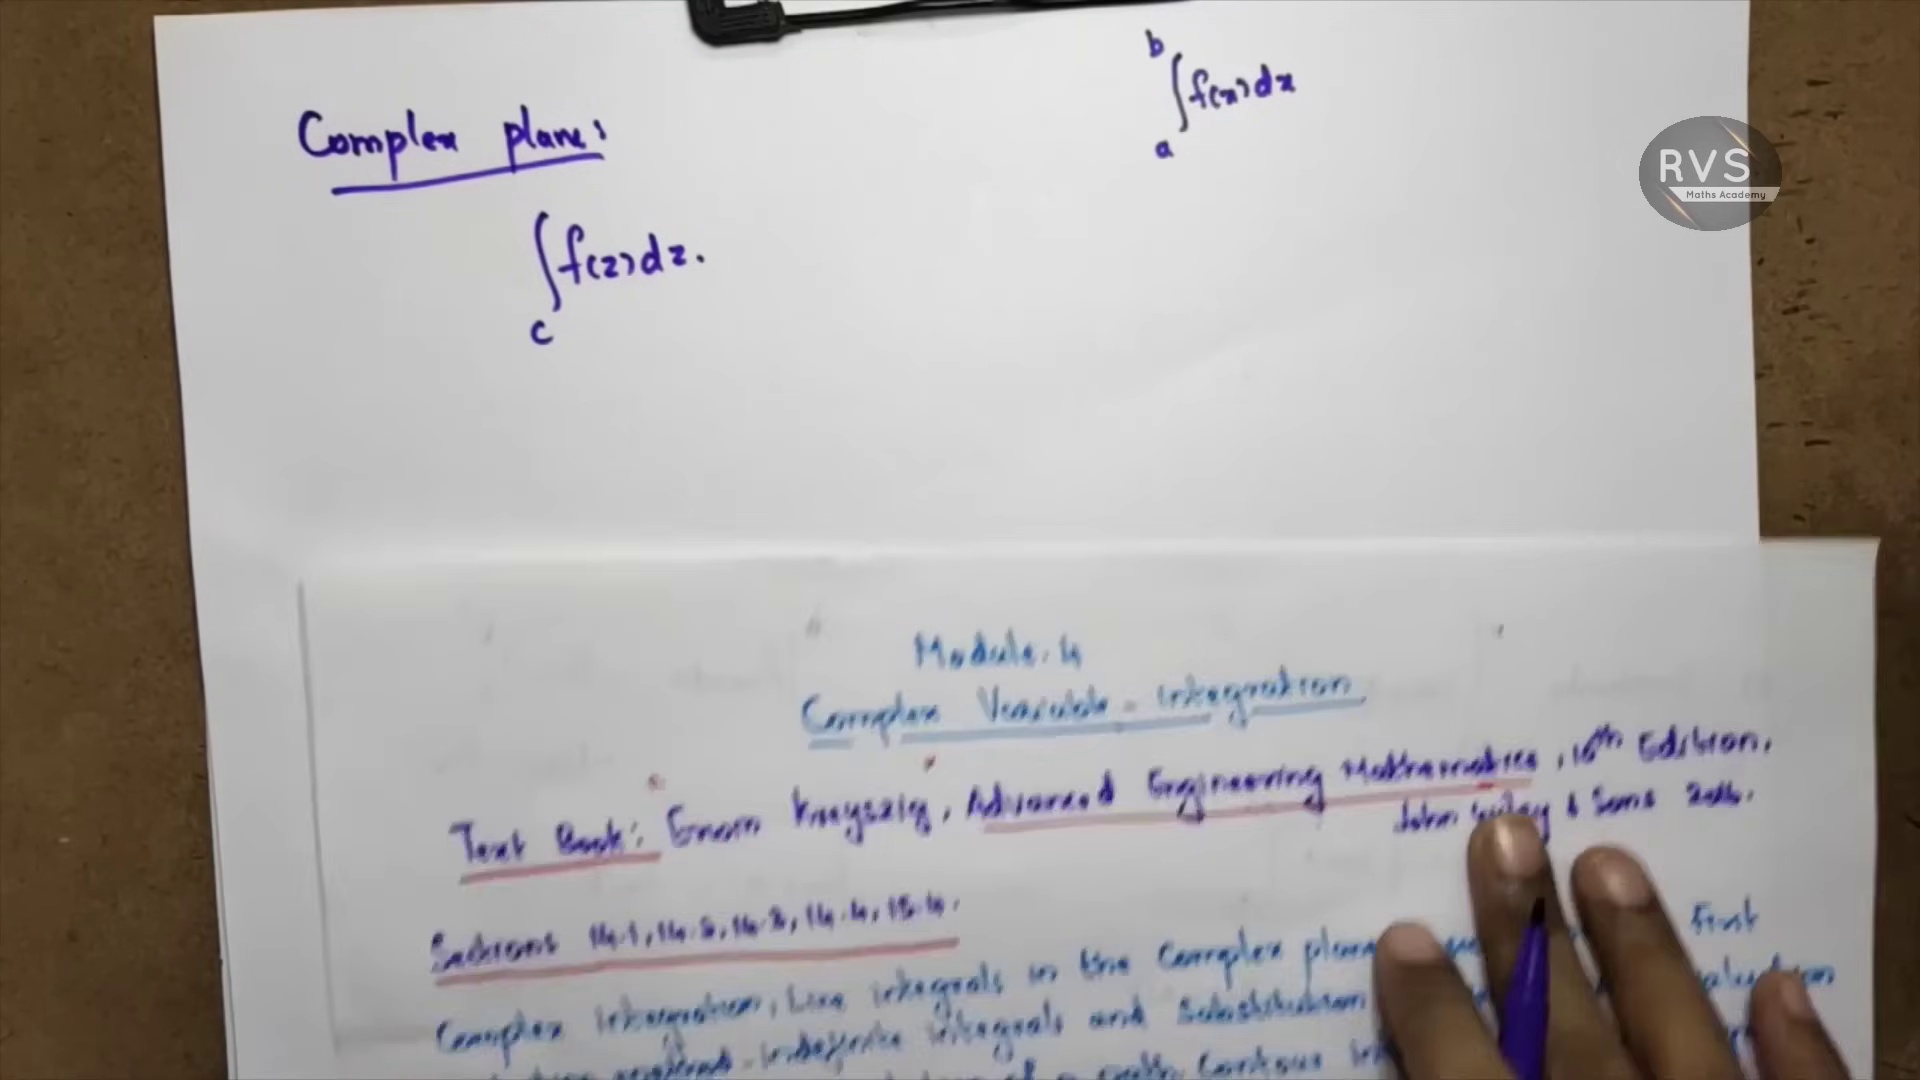 Complex plane:
∫ f(z) dz.
c
b
∫ f(x) dx
a
RVS
Maths Academy
Module-4
Complex Variable - Integration
Text Book: Erwin Kreyszig, Advanced Engineering Mathematics, 10th Edition,
John Wiley & Sons 2016.
Sections 14.1, 14.2, 14.3, 14.4, 15.4.
Complex integration, Line integrals in the Complex plane First
indefinite integrals and Substitution